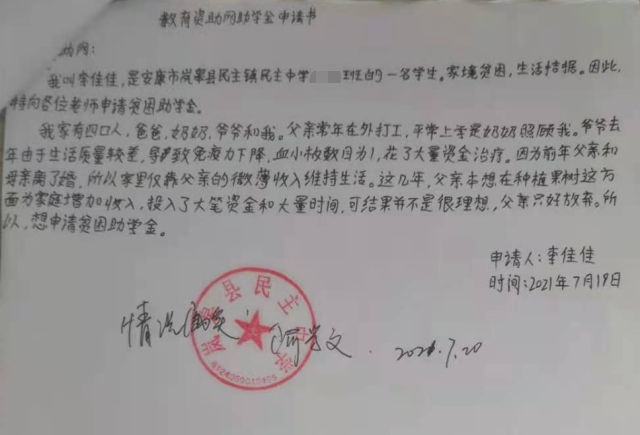 教育资助网助学金申请书
助网：
我叫李佳佳，是安康市岚皋县民主镇民主中学 班的一名学生。家境贫困，生活拮据。因此，
特向各位老师申请贫困助学金。
我家有四口人，爸爸，奶奶，爷爷和我。父亲常年在外打工，平常上学是奶奶照顾我。爷爷去
年由于生活质量较差，导致免疫力下降，血小板数目为1，花了大量资金治疗。因为前年父亲和
母亲离了婚，所以家里仅靠父亲的微薄收入维持生活。这几年，父亲本想在种植果树这方
面为家庭增加收入，投入了大笔资金和大量时间，可结果并不是很理想，父亲只好放弃。所
以，想申请贫困助学金。
申请人：李佳佳
时间：2021年7月19日
县民主
情况属实
2021.7.20